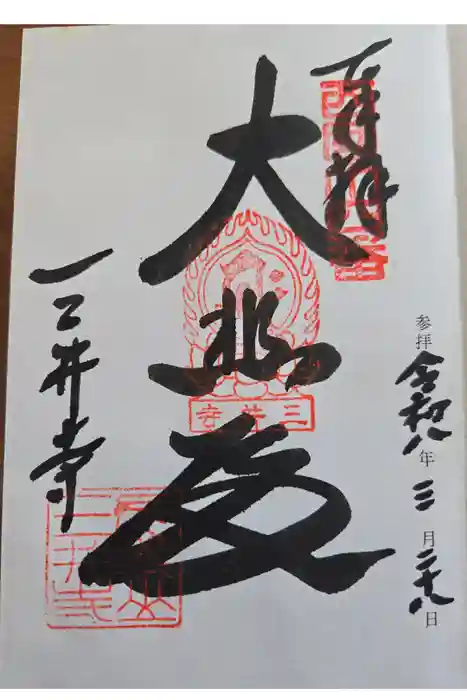 参拝 令和八年 三月二十八日
奉拝
大悲殿
三井寺
三井寺